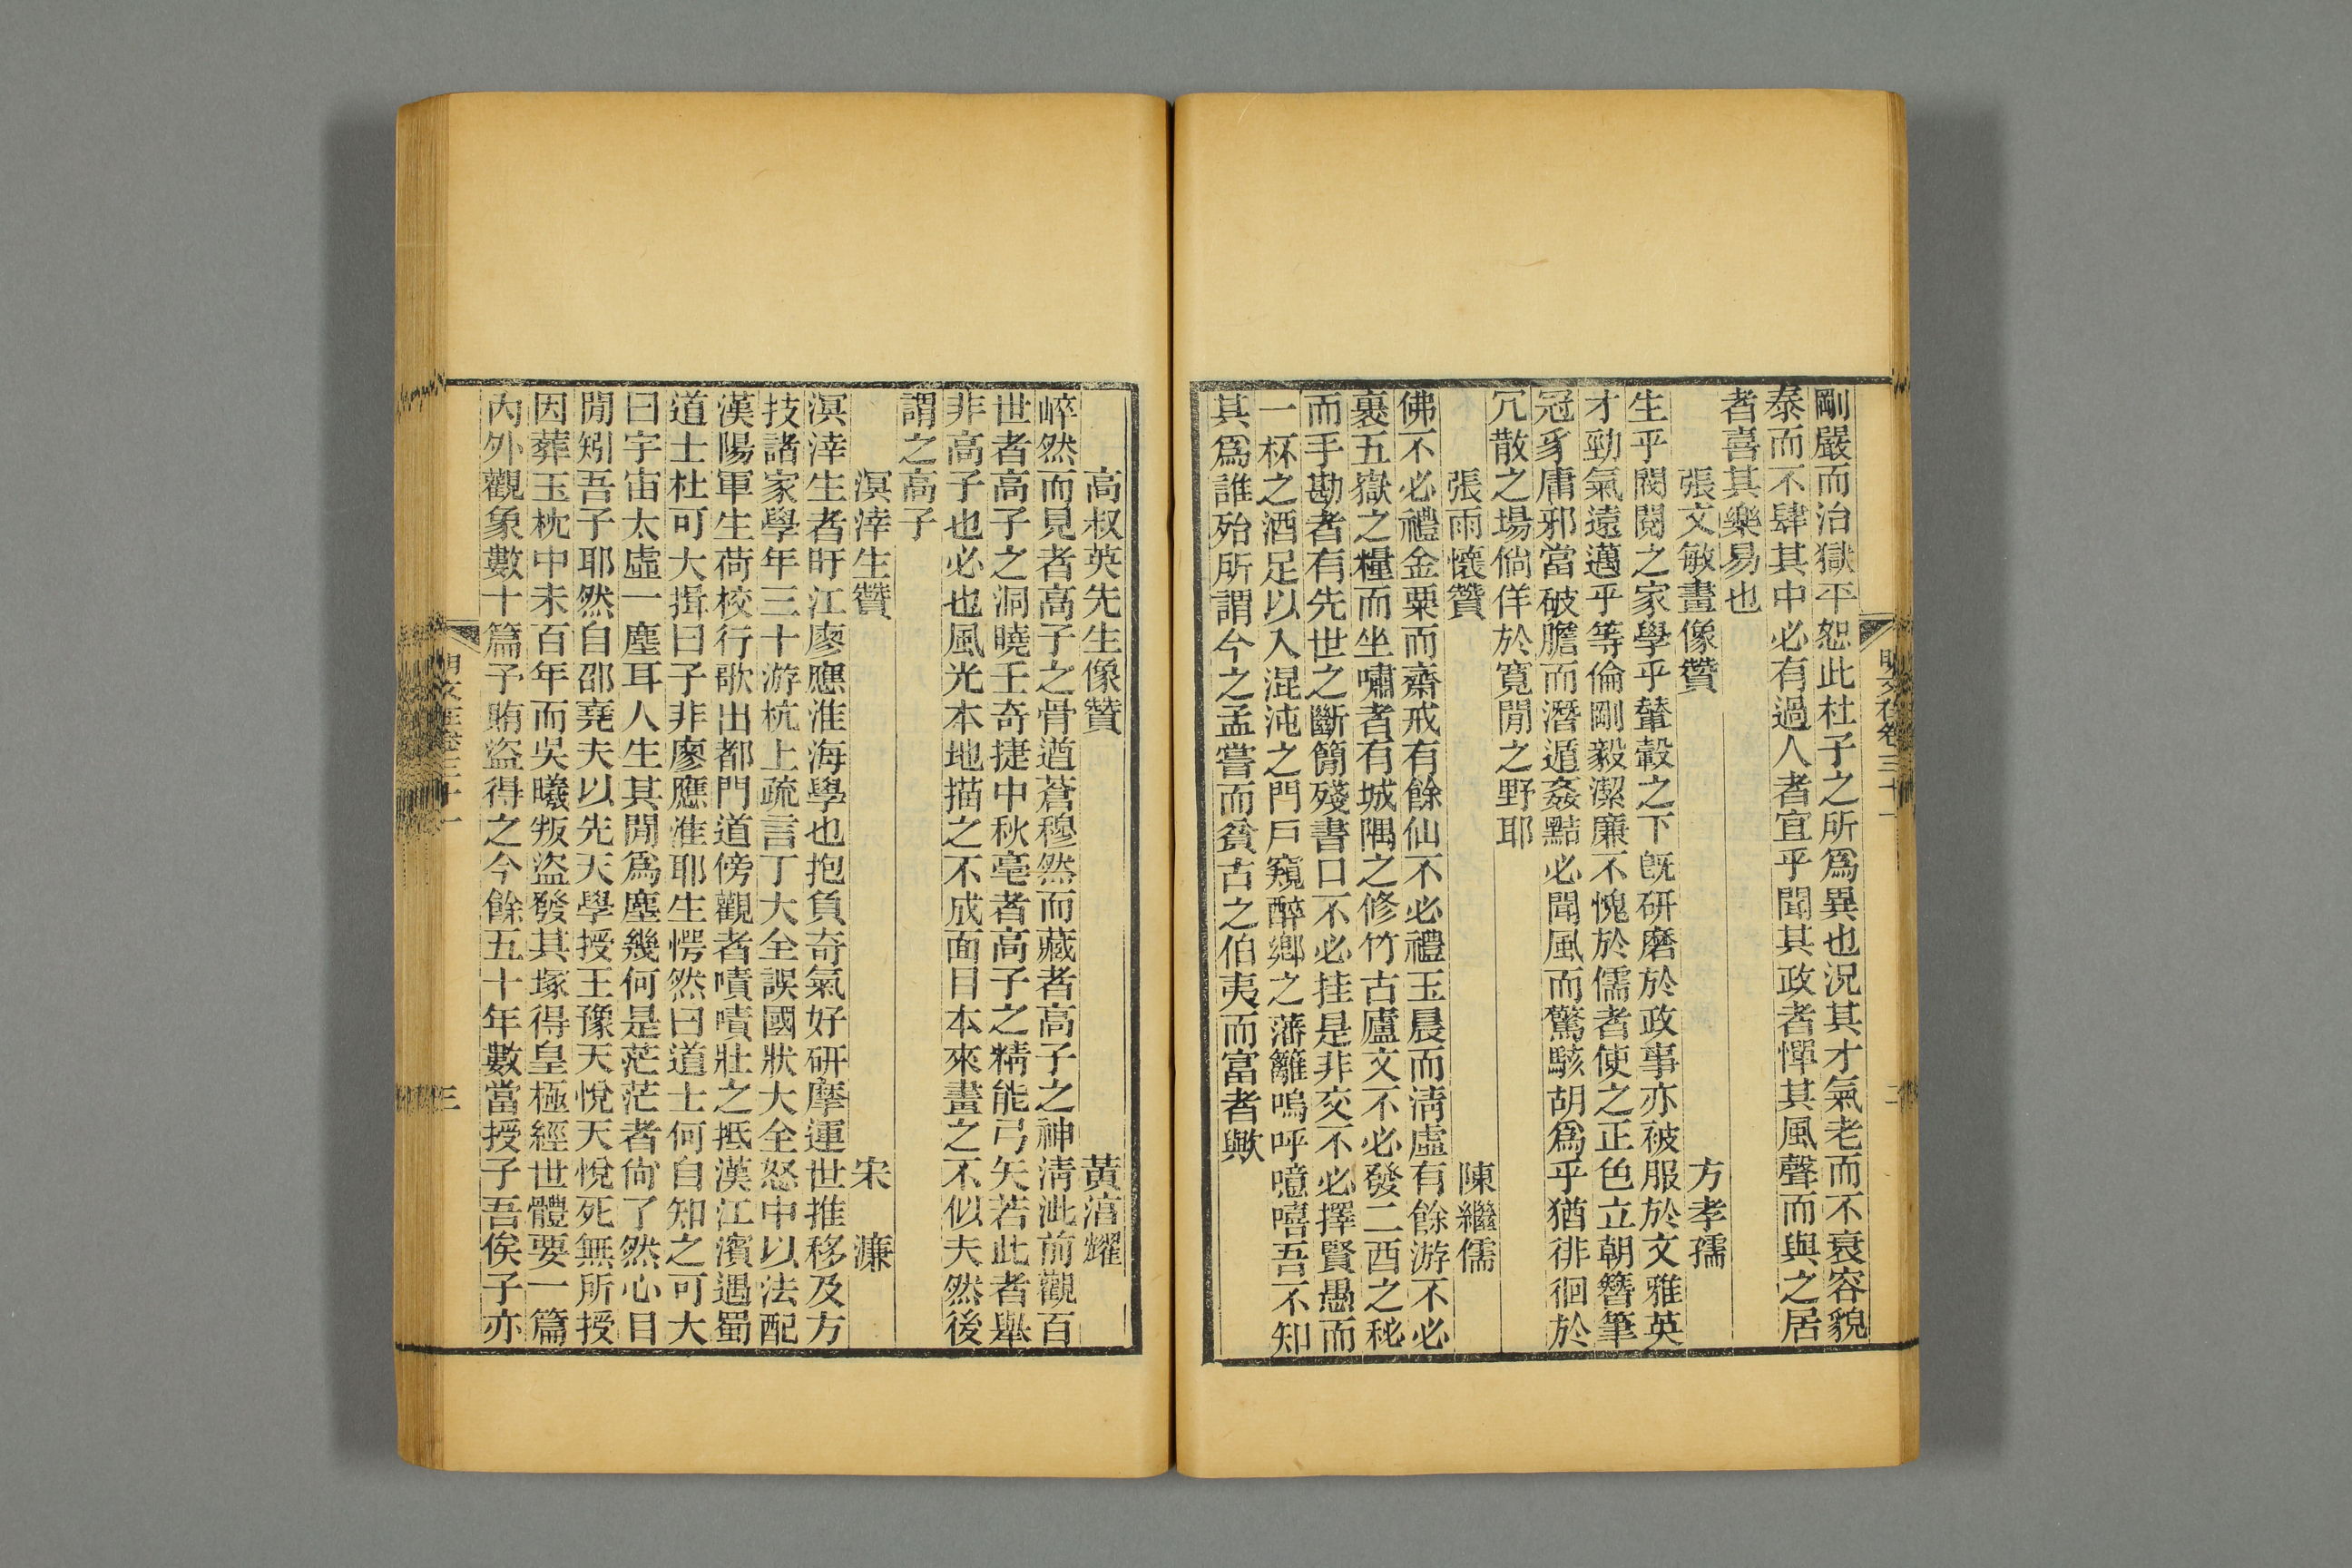 剛嚴而治獄平恕此杜子之所爲異也況其才氣老而不衰容貌
泰而不肆其中必有過人者宜乎聞其政者憚其風聲而與之居
者喜其樂易也
張文敏畫像贊 方孝孺
生乎閥閱之家學乎輦轂之下既研磨於政事亦被服於文雅英
才勁氣遠邁乎等倫剛毅潔廉不愧於儒者使之正色立朝簪筆
冠豸庸邪當破膽而潛遁姦黠必聞風而驚駭胡爲乎猶徘徊於
冗散之場倘佯於寬閒之野耶
張雨懷贊 陳繼儒
佛不必禮金粟而齋戒有餘仙不必禮玉晨而淸虛有餘游不必
裹五嶽之糧而坐嘯者有城隅之修竹古廬文不必發二酉之秘
而手勘者有先世之斷簡殘書口不必挂是非交不必擇賢愚而
一杯之酒足以入混沌之門戶窺醉鄉之藩籬嗚呼噫嘻吾不知
其爲誰殆所謂今之孟嘗而貧古之伯夷而富者歟
二
高叔英先生像贊 黃湻耀
崪然而見者高子之骨遒蒼穆然而藏者高子之神淸泚前觀百
世者高子之洞曉壬奇捷中秋毫者高子之精能弓矢若此者舉
非高子也必也風光本地描之不成面目本來畫之不似夫然後
謂之高子
溟涬生贊 宋濂
溟涬生者旴江廖應淮海學也抱負奇氣好研摩運世推移及方
技諸家學年三十游杭上疏言丁大全誤國狀大全怒中以法配
漢陽軍生荷校行歌出都門道傍觀者嘖嘖壯之抵漢江濱遇蜀
道士杜可大揖曰子非廖應淮耶生愕然曰道士何自知之可大
曰宇宙太虛一塵耳人生其閒爲塵幾何是茫茫者尙了然心目
閒矧吾子耶然自邵堯夫以先天學授王豫天悅天悅死無所授
因葬玉枕中未百年而吳曦叛盜發其塚得皇極經世體要一篇
內外觀象數十篇予賄盜得之今餘五十年數當授子吾俟子亦
三